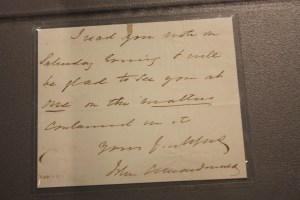 I read your note on
Saturday Evening & will
be glad to see you at
one on the matter
contained in it
Yours faithfully
John